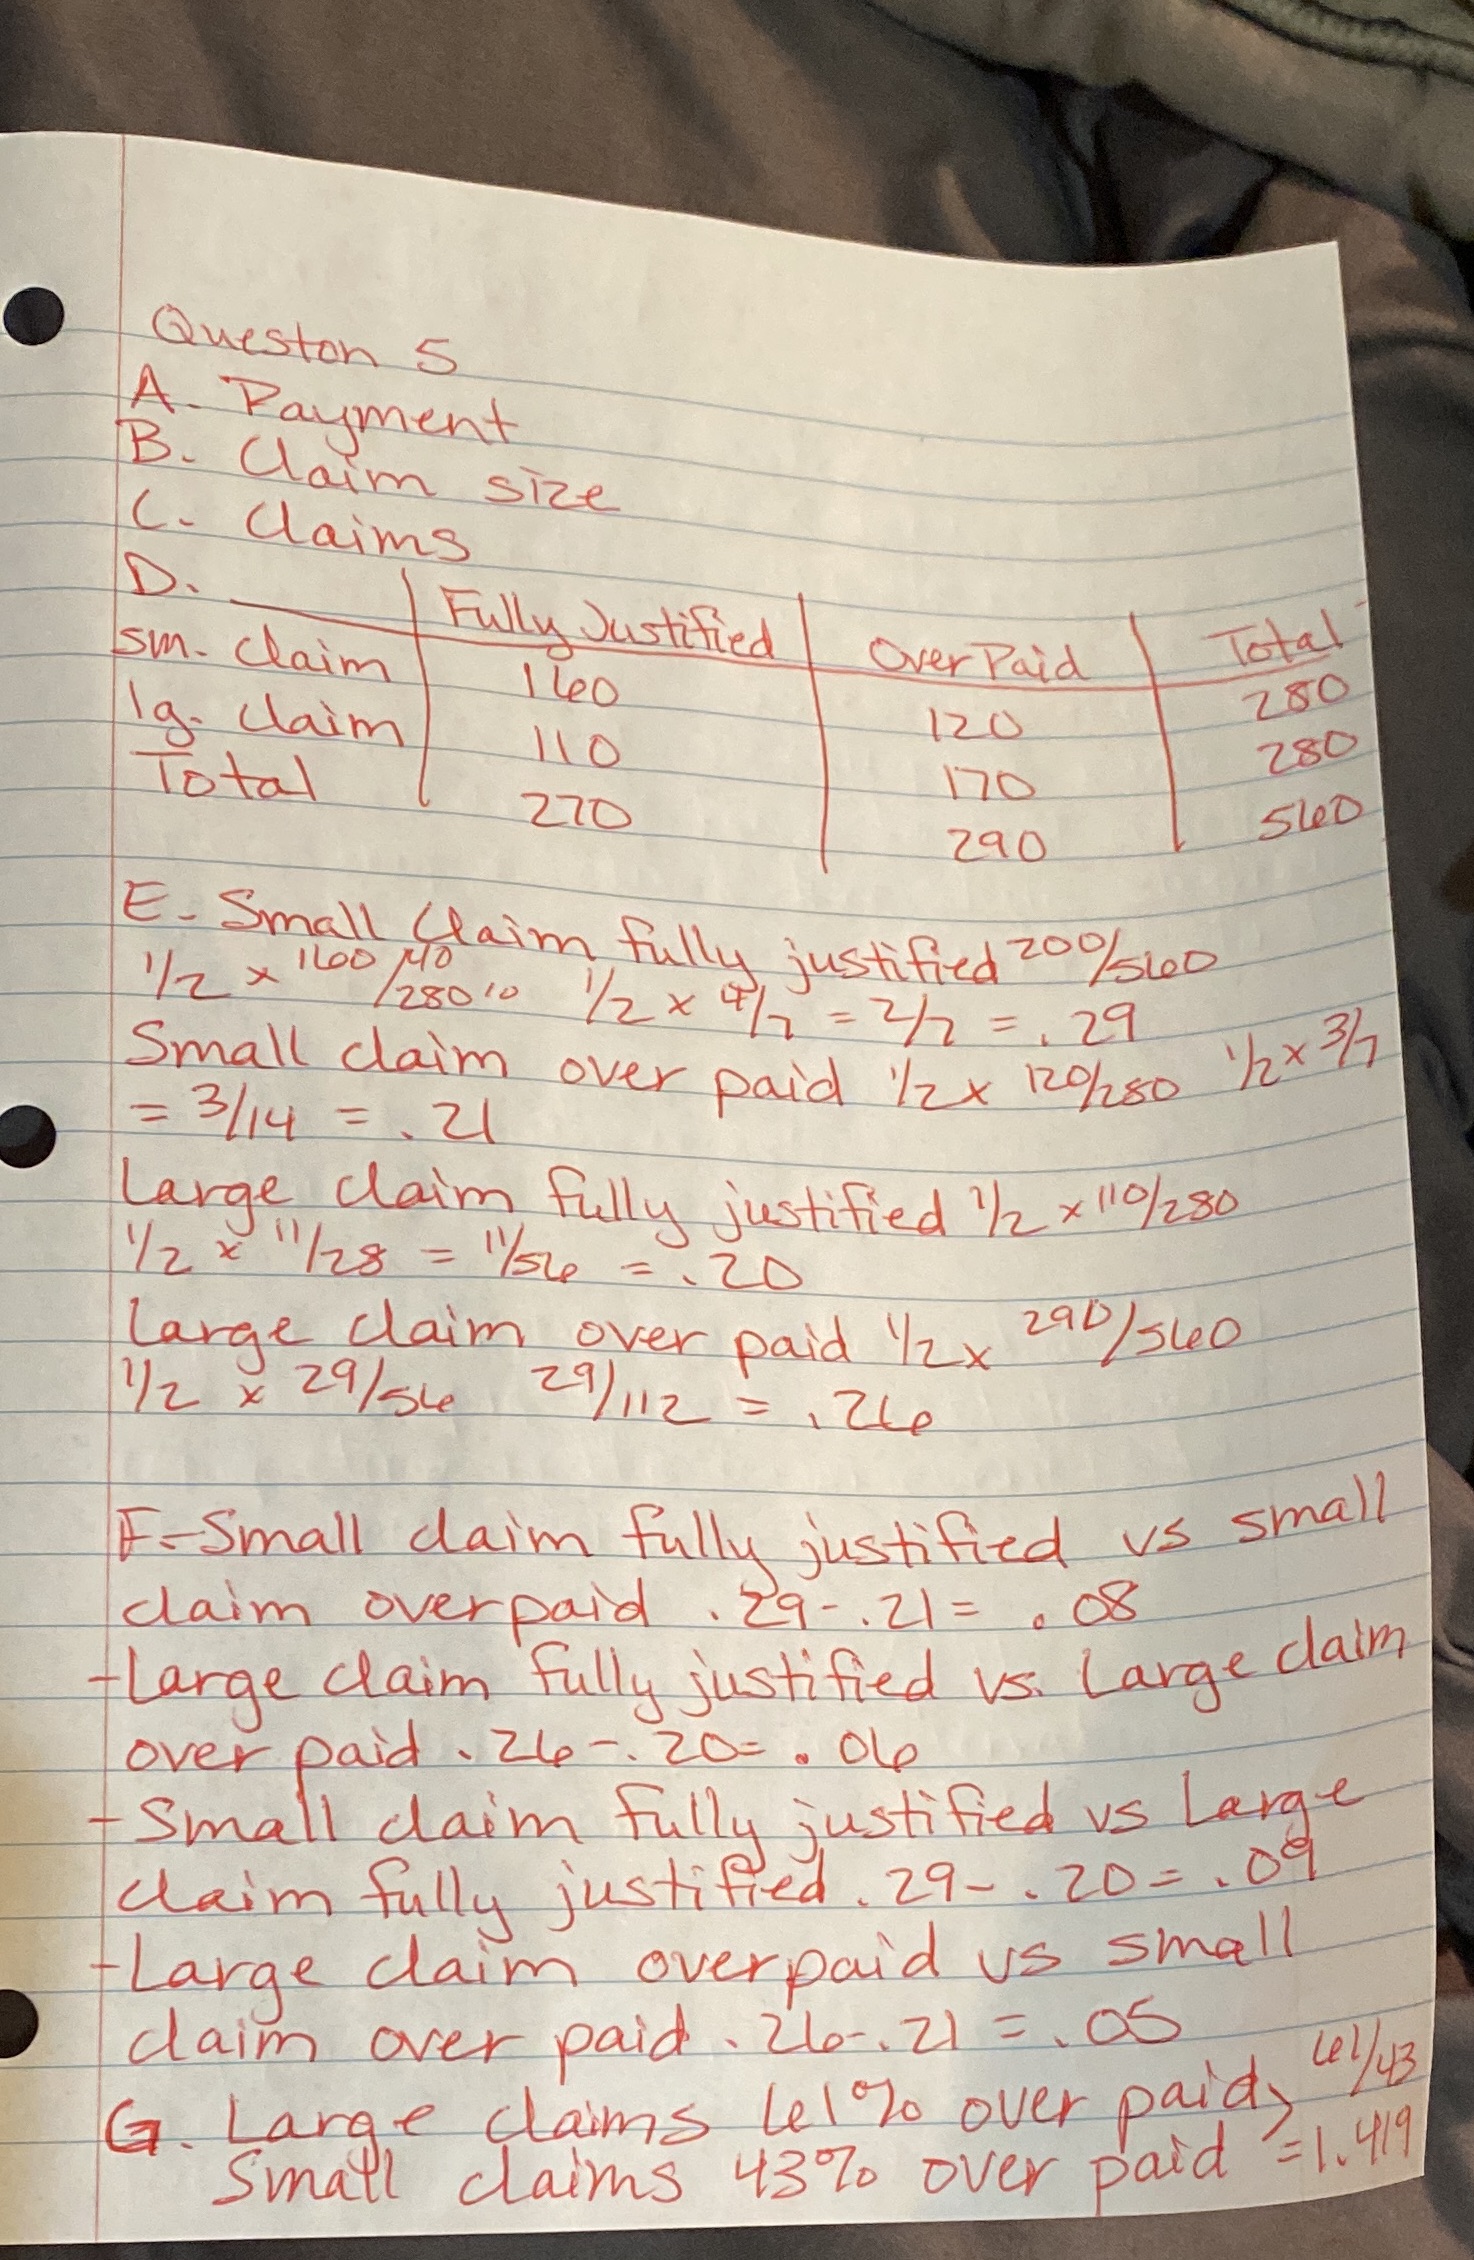 Queston 5
A. Payment
B. Claim size
C. Claims
D. Fully Justified OverPaid Total
sm. claim 160 120 280
lg. claim 110 170 280
Total 270 290 560
E. Small Claim fully justified 200/560
1/2 x 160/280 40/10 1/2 x 4/7 = 2/7 = .29
Small claim over paid 1/2 x 120/280 1/2 x 3/7
= 3/14 = .21
Large claim fully justified 1/2 x 110/280
1/2 x 11/28 = 11/56 = .20
Large claim over paid 1/2 x 290/560
1/2 x 29/56 29/112 = .26
F-Small claim fully justified vs small
claim overpaid .29-.21= .08
-Large claim fully justified vs. Large claim
over paid .26-.20= .06
-Small claim fully justified vs Large
claim fully justified .29- .20= .09
-Large claim overpaid vs small
claim over paid .26-.21 = .05
G. Large claims 61% over paid> 61/43
Small claims 43% over paid =1.419